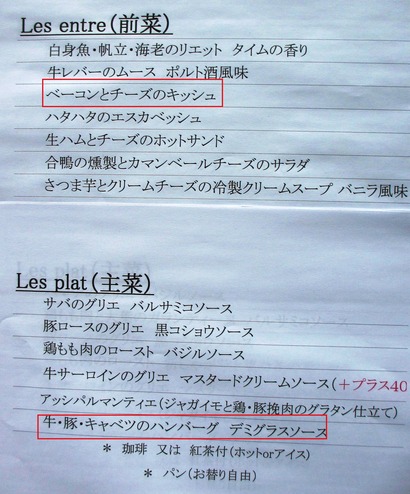 Les entre(前菜)
白身魚・帆立・海老のリエット タイムの香り
牛レバーのムース ポルト酒風味
ベーコンとチーズのキッシュ
ハタハタのエスカベッシュ
生ハムとチーズのホットサンド
合鴨の燻製とカマンベールチーズのサラダ
さつま芋とクリームチーズの冷製クリームスープ バニラ風味
Les plat(主菜)
サバのグリエ バルサミコソース
豚ロースのグリエ 黒コショウソース
鶏もも肉のロースト バジルソース
牛サーロインのグリエ マスタードクリームソース(+プラス40
アッシパルマンティエ(ジャガイモと鶏・豚挽肉のグラタン仕立て)
牛・豚・キャベツのハンバーグ デミグラスソース
* 珈琲 又は 紅茶付(ホットorアイス)
* パン(お替り自由)